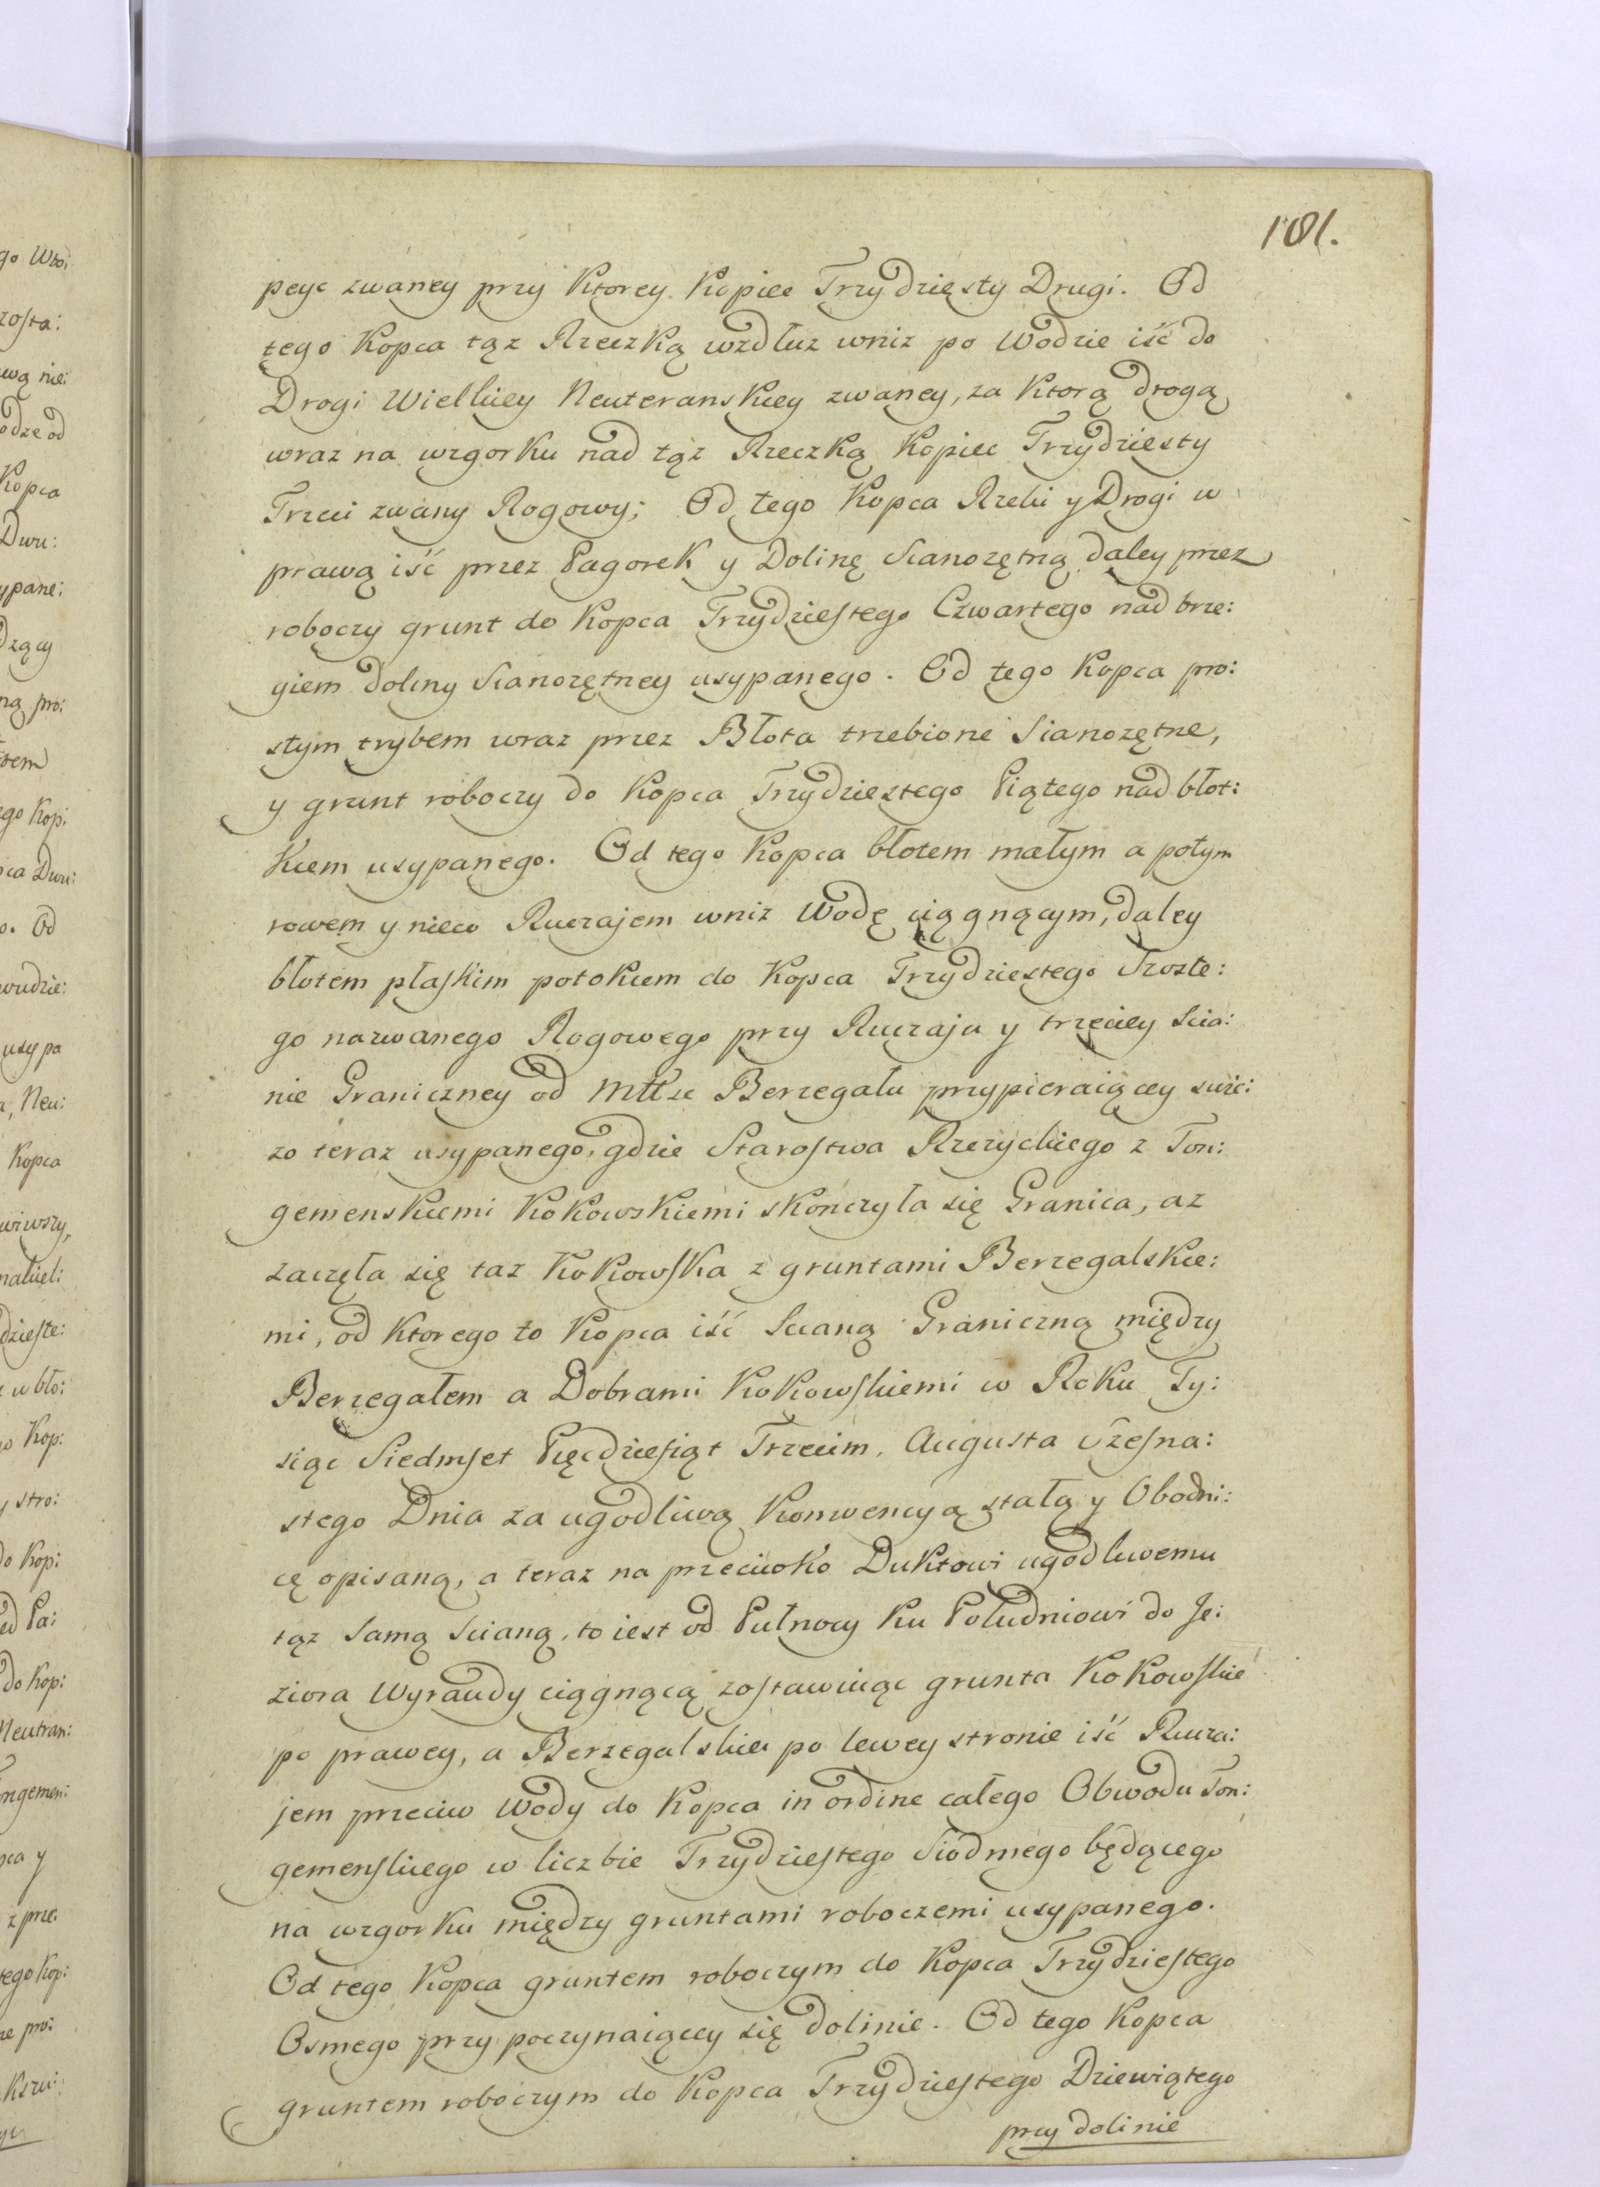 181.
peyc zwaney przy Ktorey Kopiec Trzydziesty Drugi. Od
tego Kopca tąz Rzeczką wzdłuz wniz po Wodzie iść do
Drogi Wielkiey Neuteranskiey zwaney, za Ktorą drogą
wraz na wzgorku nad tąz Rzeczką Kopiec Trzydziesty
Trzeci zwany Rogowy; Od tego Kopca Rzeki y Drogi w
prawą iść przez Pagorek y Dolinę Sianozętną daley przez
roboczy grunt do Kopca Trzydziestego Czwartego nad brze:
giem doliny Sianozętney usypanego. Od tego Kopca pro:
stym trybem wraz przez Błota trzebione Sianozętne,
y grunt roboczy do Kopca Trzydziestego Piątego nad błot:
Kiem usypanego. Od tego Kopca błotem małym a potym
rowem y nieco Ruczajem wniz Wodę ciągnącym, daley
błotem płaskim potokiem do Kopca Trzydziestego Szoste:
go nazwanego Rogowego przy Ruczaju y trzeciey Scia:
nie Graniczney od Mttsc Berzegalu przypieraiącey swie:
zo teraz usypanego, gdzie Starostwa Rzezyckiego z Ton:
gemenskiemi Kokowskiemi skończyła się Granica, az
zaczęła się taz Kokowska z gruntami Berzegalskie:
mi, od Ktorego to Kopca iść Scianą Graniczną między
Berzegałem a Dobrami Kokowskiemi w Roku Ty:
siąc Siedmset Pięcdziesiąt Trzecim, Augusta Szesna:
stego Dnia za ugodliwą Konwencyą stałą y Obodni:
cę opisaną, a teraz na przeciwko Duktowi ugodliwemu
tąz Samą Scianą, to iest od Pułnocy Ku Południowi do Je:
ziora Wyraudy ciągnącą zostawuiąc grunta Kokowskie
po prawey, a Berzegalskie po lewey stronie iść Rucza:
jem przeciw Wody do Kopca in ordine całego Obwodu Ton:
gemenskiego w liczbie Trzydziestego Siodmego będącego
na wzgorku między gruntami roboczemi usypanego.
Od tego Kopca gruntem roboczym do Kopca Trzydziestego
Osmego przy poczynaiącey się dolinie. Od tego Kopca
gruntem roboczym do Kopca Trzydziestego Dziewiątego
przy dolinie